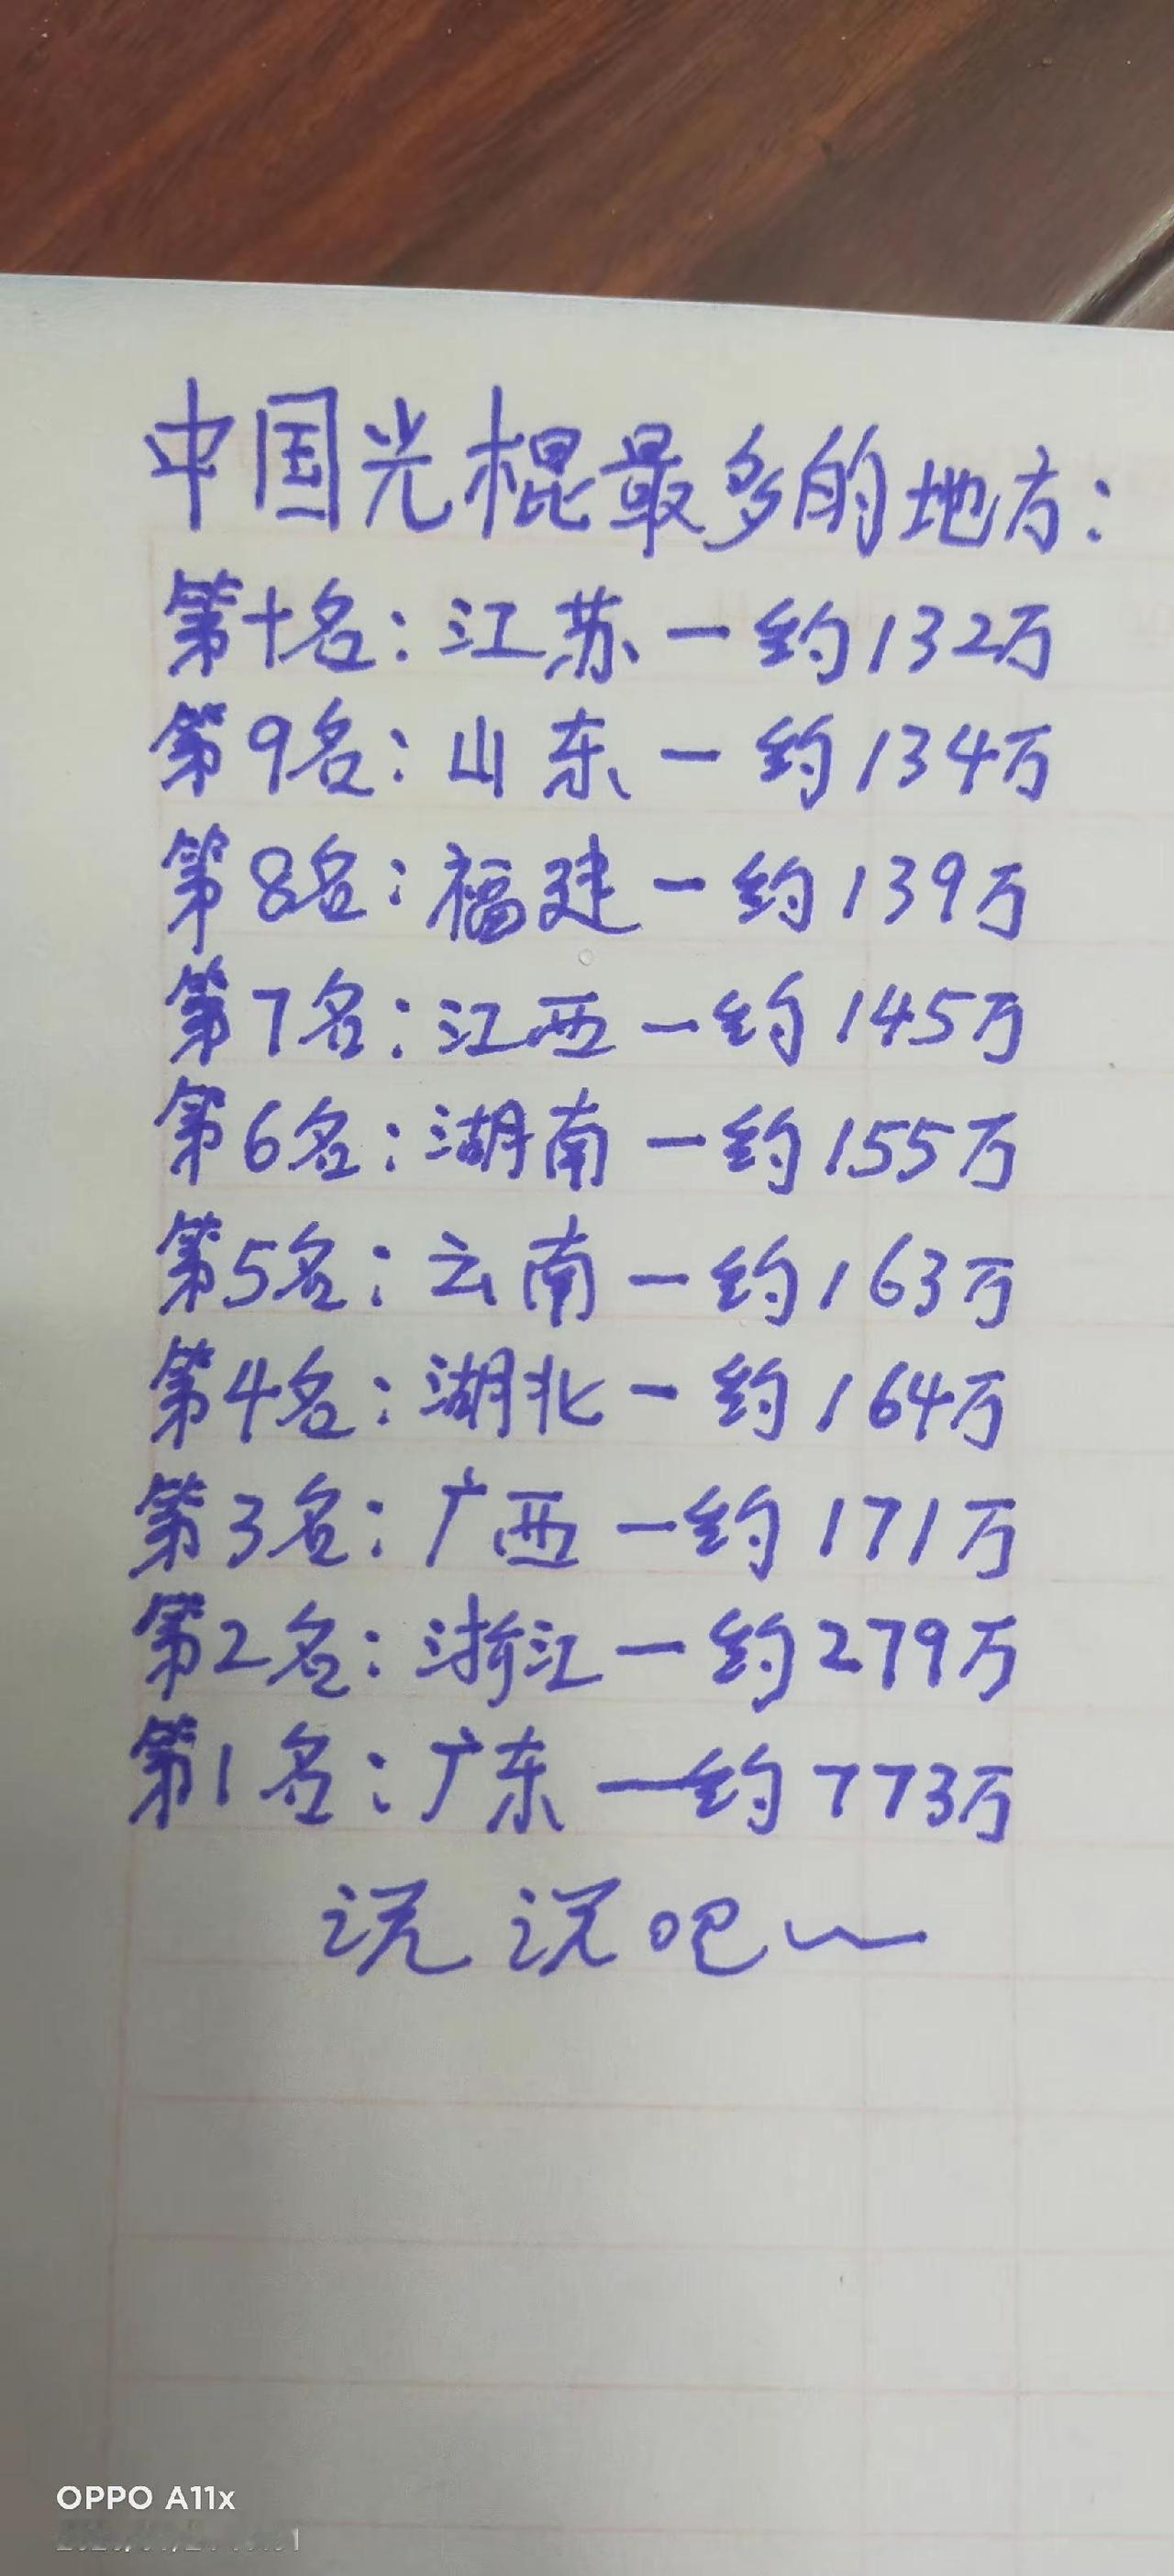 中国光棍最多的地方：
第十名：江苏一约132万
第9名：山东一约134万
第8名：福建一约139万
第7名：江西一约145万
第6名：湖南一约155万
第5名：云南一约163万
第4名：湖北一约164万
第3名：广西一约171万
第2名：浙江一约279万
第1名：广东一约773万
说说吧~
OPPO A11x